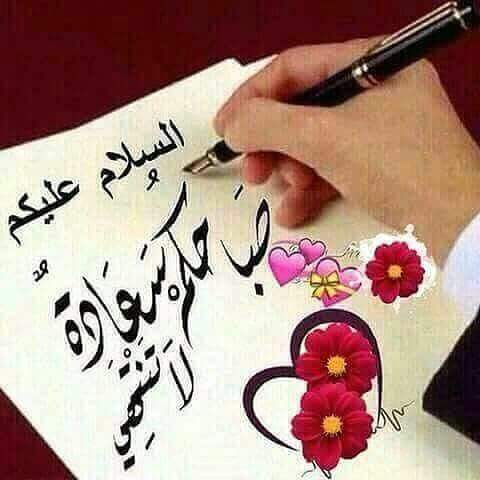 السلام عليكم
صَبَاحُكُمْ سَعَادَةٌ
لَا تَنْتَهِي